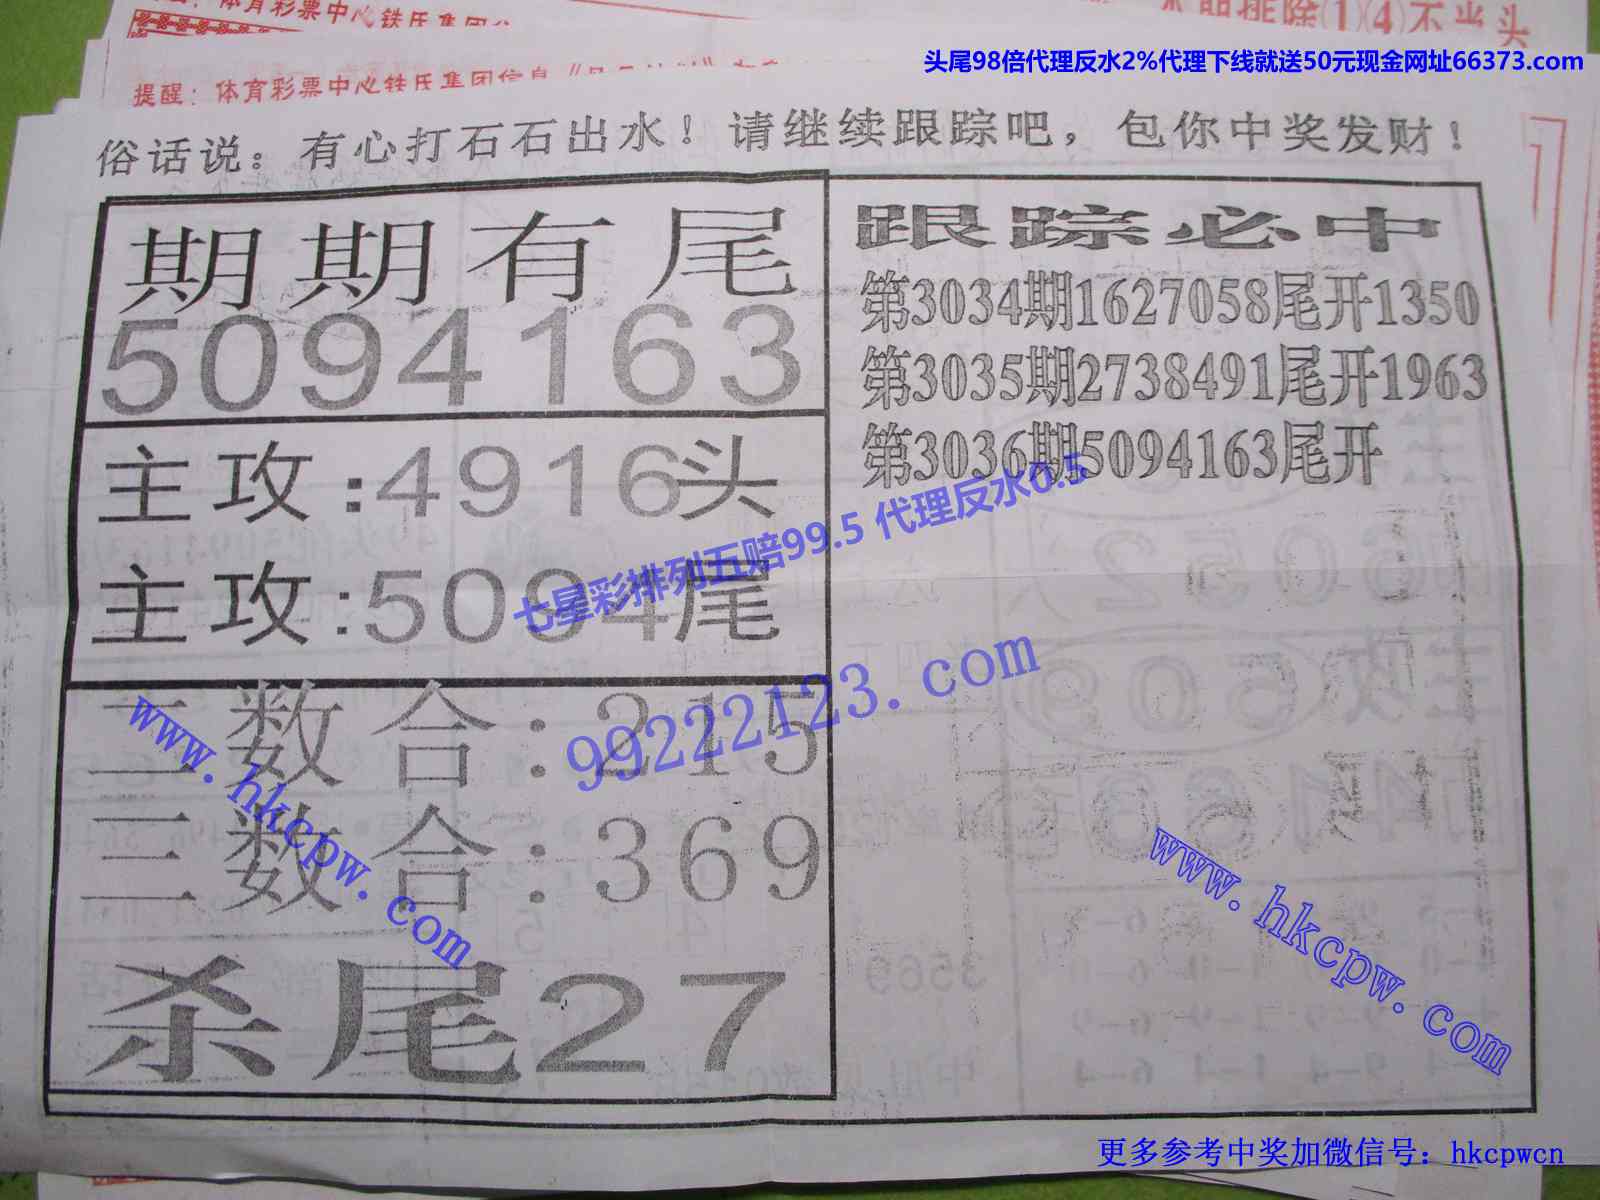 提醒：体育彩票中心铁氏集团信息
头尾98倍代理反水2%代理下线就送50元现金网址66373.com
俗话说：有心打石石出水！请继续跟踪吧，包你中奖发财！
期期有尾
5094163
主攻:4916头
主攻:5094尾
二数合:215
三数合:369
杀尾27
跟踪必中
第3034期1627058尾开1350
第3035期2738491尾开1963
第3036期5094163尾开
七星彩排列五赔99.5 代理反水0.5
99222123.com
www.hkcpw.com
www.hkcpw.com
更多参考中奖加微信号：hkcpwcn